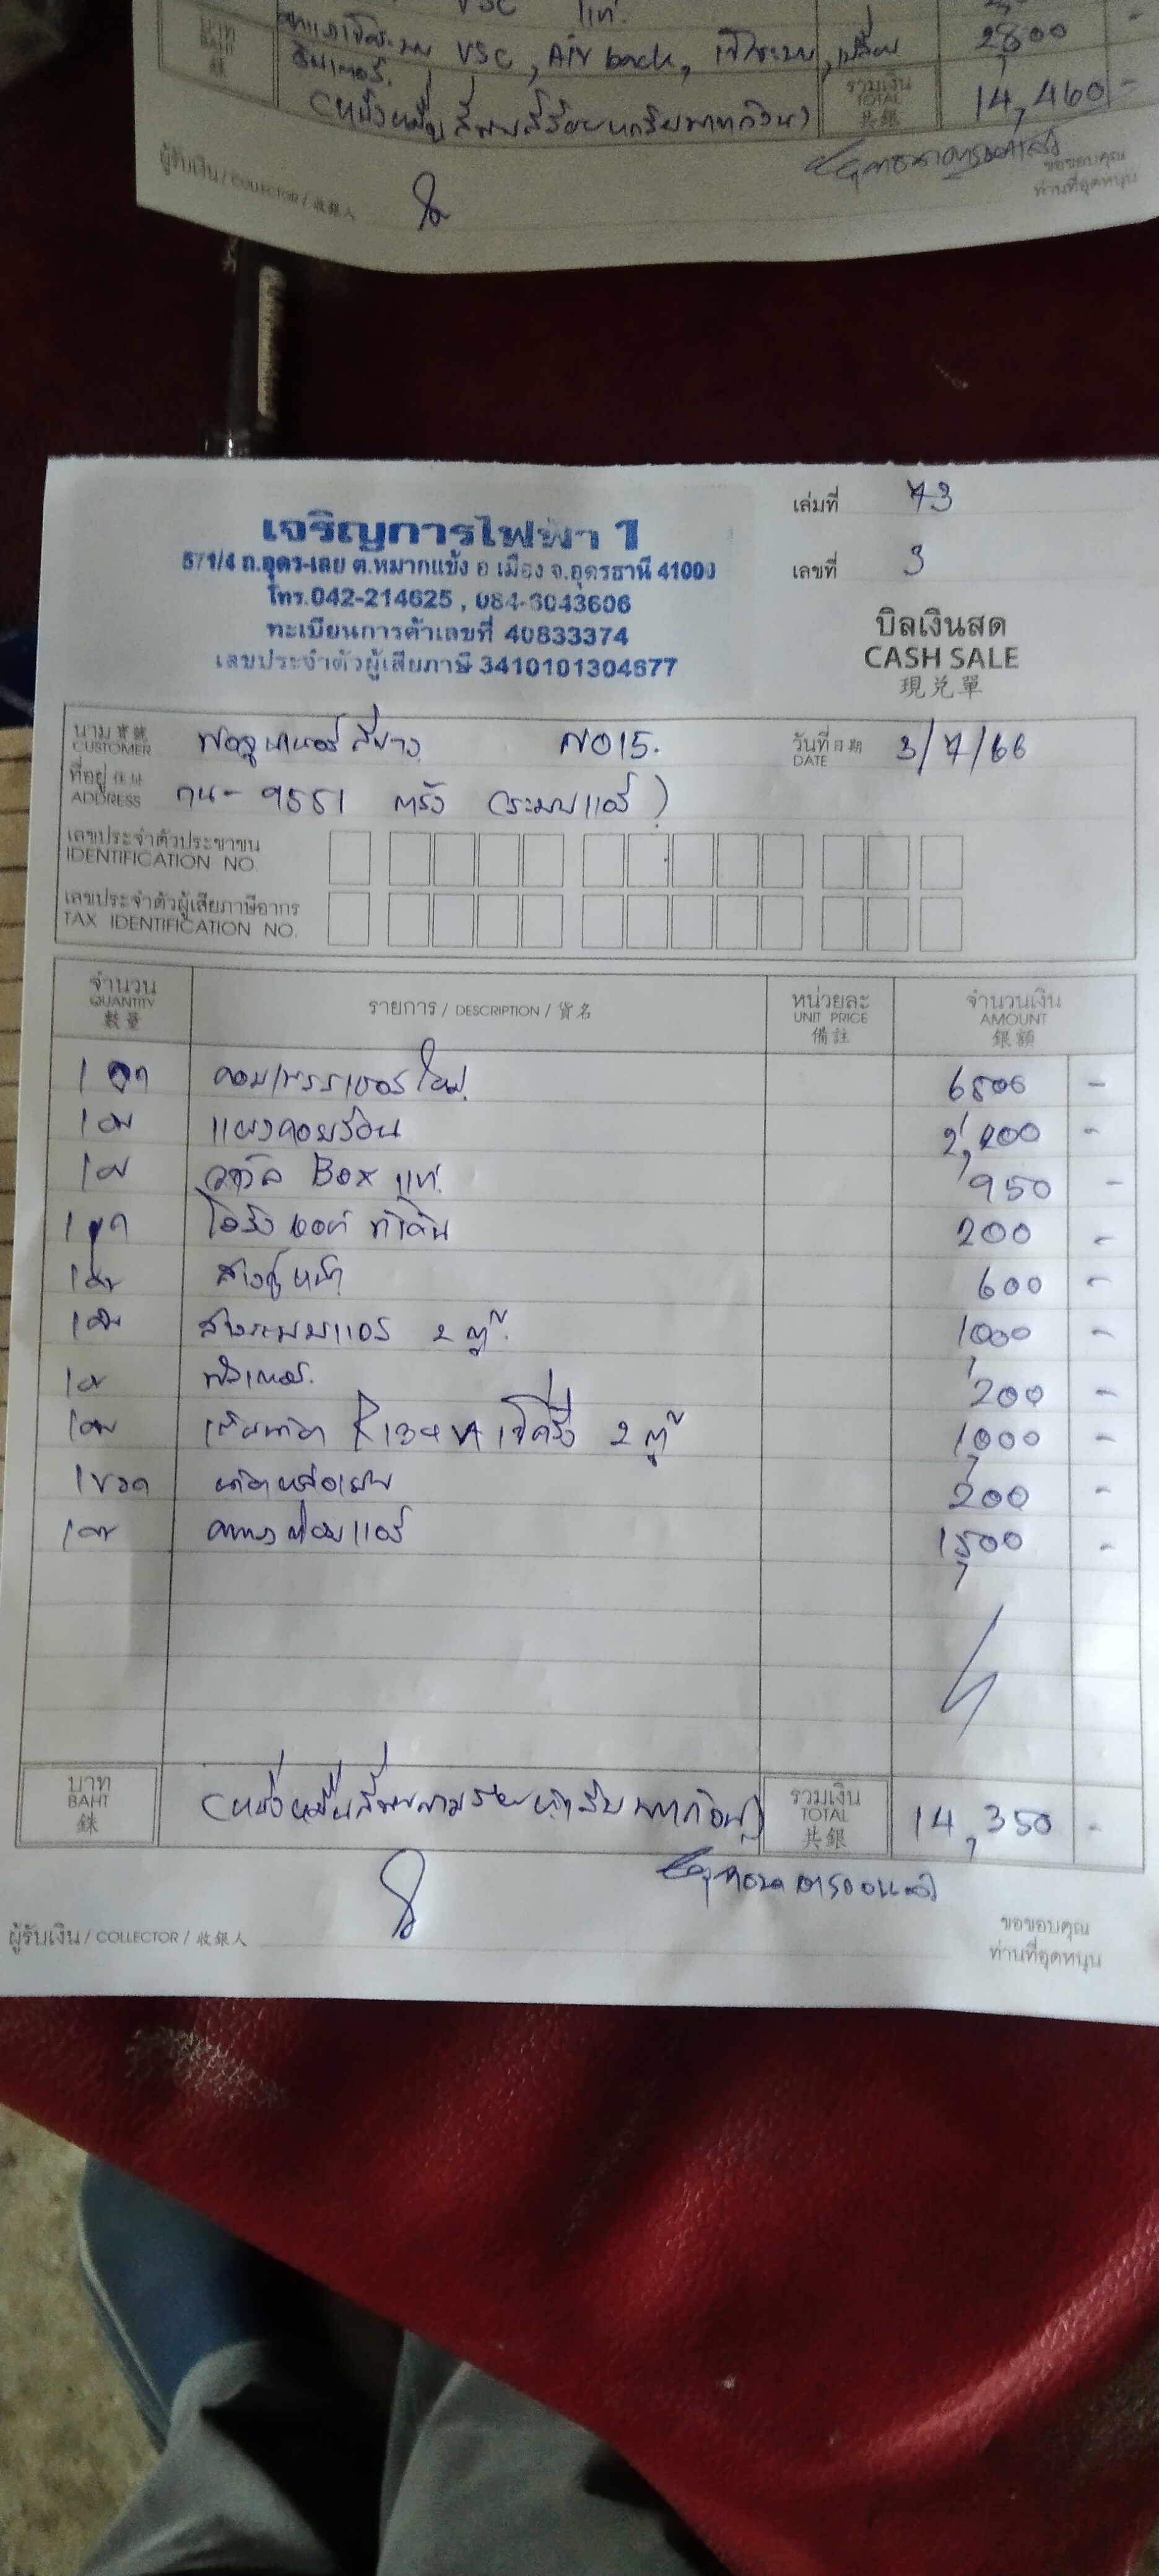 VSC แท้.
บาท BAHT 銖 VSC, Air back, 2,800 -
(หนึ่งหมื่นสี่พันสี่ร้อยหกสิบบาทถ้วน) รวมเงิน TOTAL 共銀 14,460 -
ผู้รับเงิน / COLLECTOR / 收銀人
ขอขอบคุณ
ท่านที่อุดหนุน
เล่มที่ 73
เจริญการไฟฟ้า 1
571/4 ถ.อุดร-เลย ต.หมากแข้ง อ.เมือง จ.อุดรธานี 41000
เลขที่ 3
โทร.042-214625 , 084-6043606
ทะเบียนการค้าเลขที่ 40833374
เลขประจำตัวผู้เสียภาษี 3410101304677
บิลเงินสด
CASH SALE
現兑單
นาม寶號 CUSTOMER ฟอจูนเนอร์ สีขาว NO15. วันที่日期 DATE 3/7/66
ที่อยู่住址 ADDRESS กน-9551 ตรัง (ระบบแอร์)
เลขประจำตัวประชาชน
IDENTIFICATION NO.
เลขประจำตัวผู้เสียภาษีอากร
TAX IDENTIFICATION NO.
จำนวน QUANTITY 數量 รายการ / DESCRIPTION / 貨名 หน่วยละ UNIT PRICE 備註 จำนวนเงิน AMOUNT 銀額
1 ลูก คอมเพรสเซอร์ใหม่. 6500 -
1 อัน แผงคอยร้อน 2,200 -
1 อัน วาล์ว Box แท้. 950 -
1 ชุด โอริง 200 -
1 อัน ล้างตู้หน้า 600 -
1 อัน ล้างระบบแอร์ 2 ตู้. 1,000 -
1 อัน 200 -
1 อัน R134A 2 ตู้ 1,000 -
1 ขวด 200 -
1 อัน ค่าแรงซ่อมแอร์ 1,500 -
บาท BAHT 銖 (หนึ่งหมื่นสี่พันสามร้อยห้าสิบบาทถ้วน) รวมเงิน TOTAL 共銀 14,350 -
ผู้รับเงิน / COLLECTOR / 收銀人
ขอขอบคุณ
ท่านที่อุดหนุน